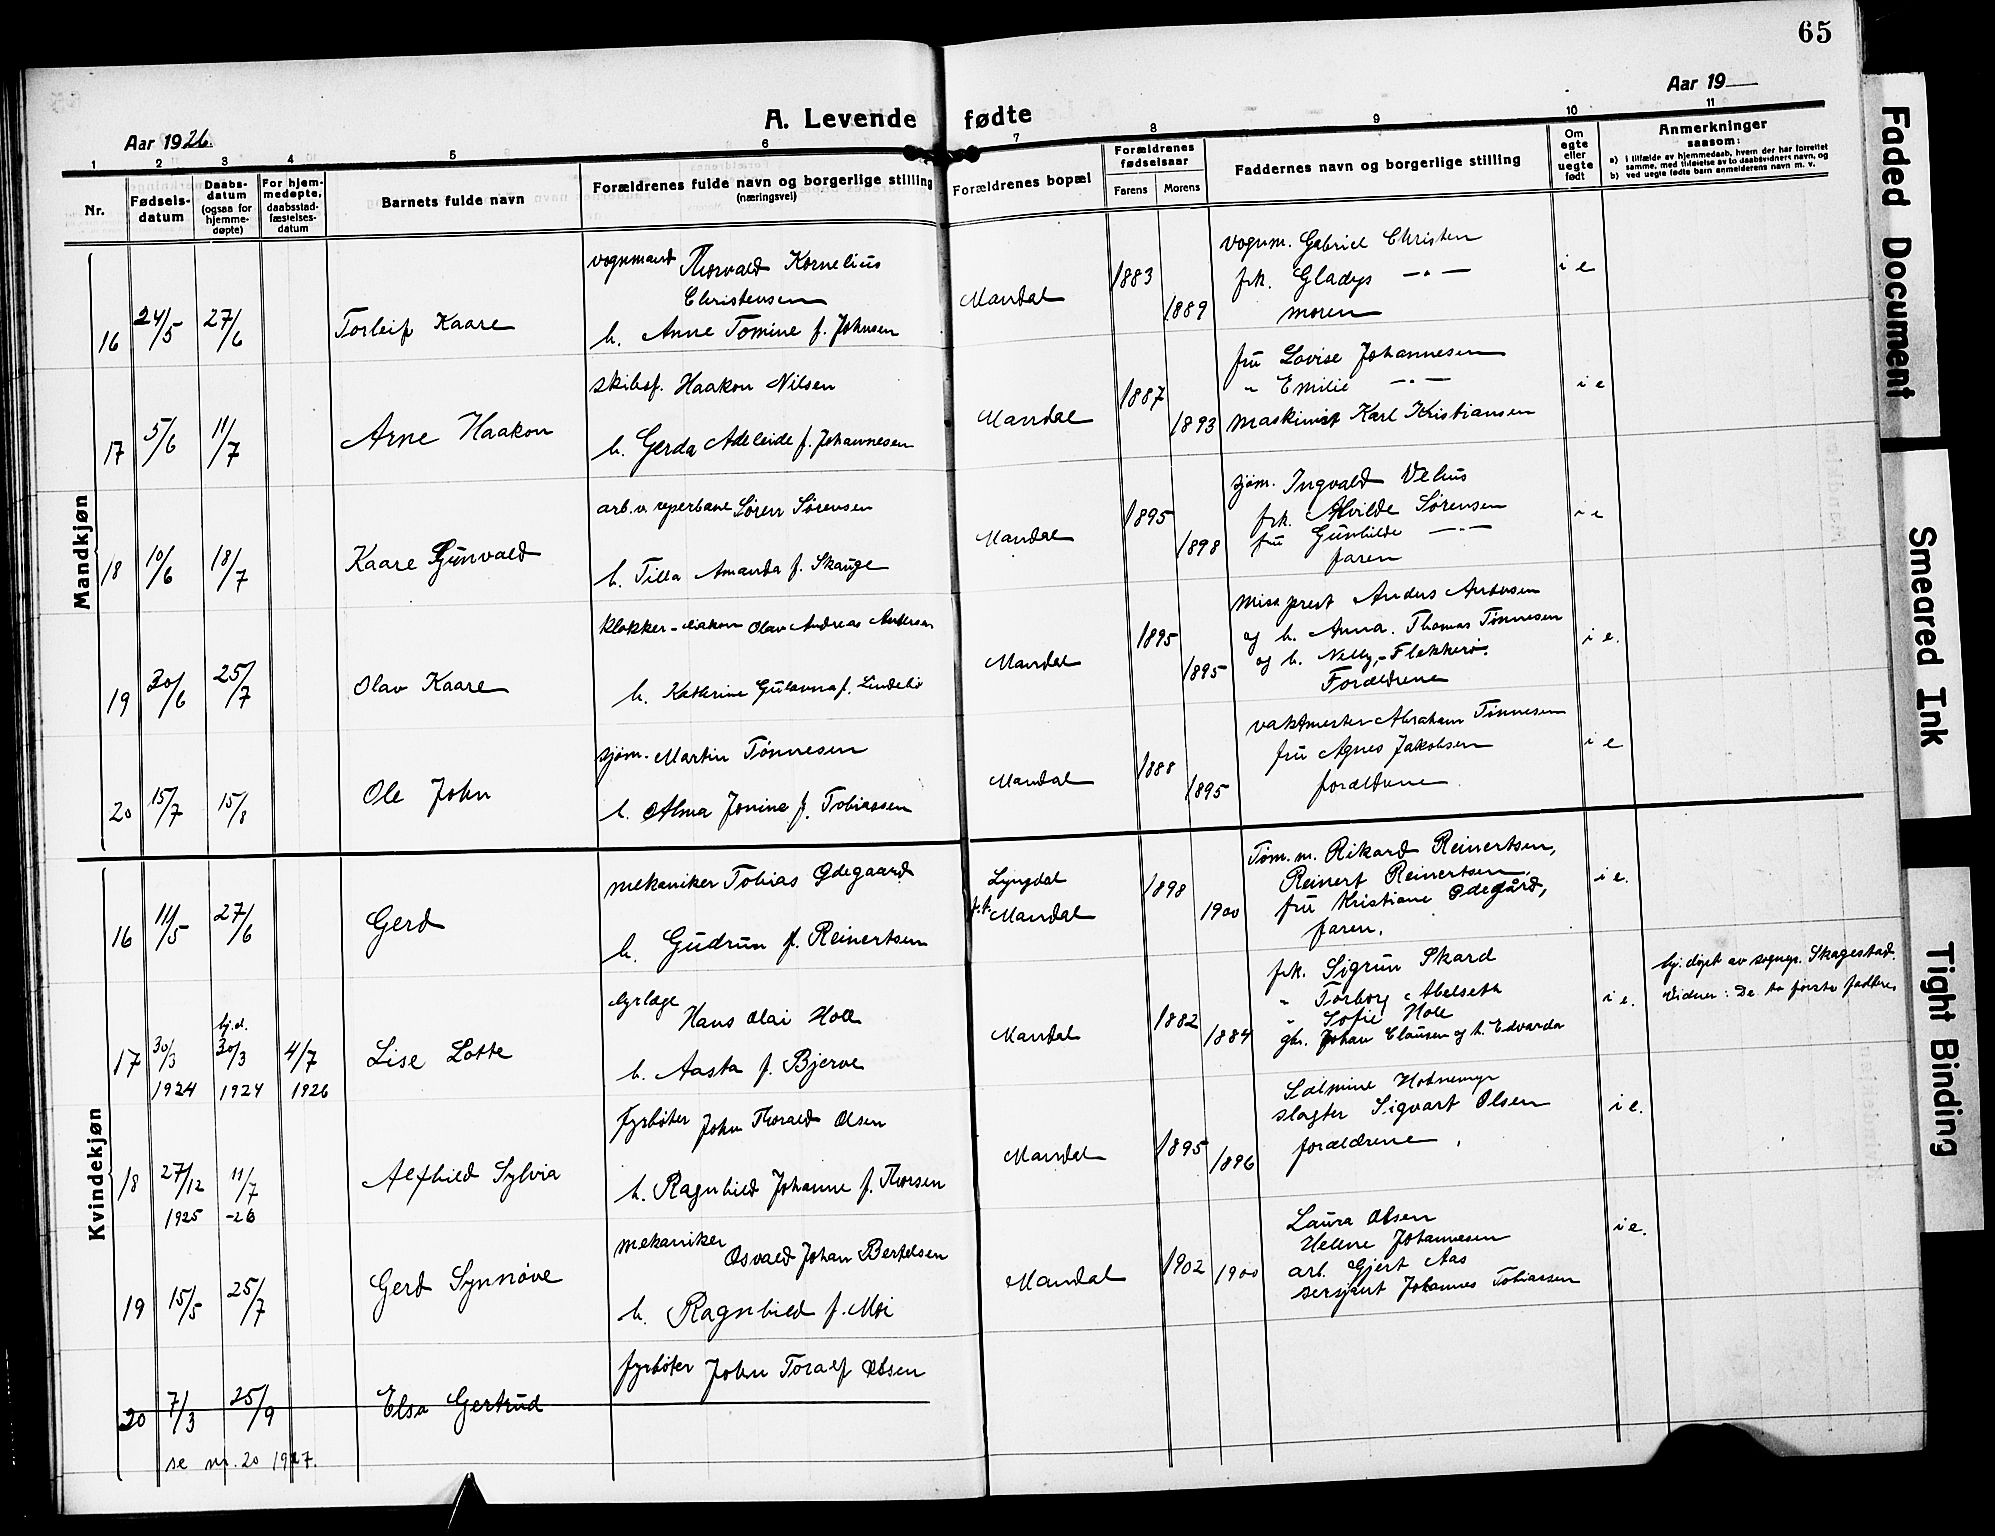 65
Aar 1926.
A. Levende fødte
Aar 19
1 2 3 4 5 6 7 8 9 10 11
Nr.
Fødsels-
datum
Daabs-
datum
(ogsaa for
hjemme-
døpte)
For hjem-
medøpte,
daabsstad-
fæstelses-
datum
Barnets fulde navn
Forældrenes fulde navn og borgerlige stilling
(næringsvei)
Forældrenes bopæl
Forældrenes
fødselsaar
Farens Morens
Faddernes navn og borgerlige stilling
Om
egte
eller
uegte
født
Anmerkninger
saasom:
a) i tilfælde av hjemmedaab, hvem der har forrettet
samme, med tilføielse av to daabsvidners navn, og
b) ved uegte fødte barn anmelderens navn m. v.
Mandkjøn
16 24/5 27/6 Torleif Kaare
vognmand Thorvald Kornelius
Christensen
h. Anne Tomine f. Johnsen
Mandal 1883 1889
vognm. Gabriel Christen
frk. Gladys — " —
moren
i e
17 5/6 11/7 Arne Haakon
skibsf. Haakon Nilsen
h. Gerda Adeleide f. Johannesen
Mandal 1887 1893
fru Lovise Johannesen
" Emilie — " —
maskinist Karl Kristiansen
i e
18 10/6 18/7 Kaare Gunvald
arb. v. reperbane Søren Sørensen
h. Tilla Amanda f. Skauge
Mandal 1895 1898
sjøm. Ingvald Velius
frk. Alvilde Sørensen
fru Gunhilde — " —
faren
i e
19 30/6 25/7 Olav Kaare
klokker-diakon Olav Andreas Andersen
h. Kathrine f. Lindebø
Mandal 1895 1895
miss prest Anders Andersen
og h. Anna. Thomas Tønnesen
og h. Nelly, - Flekkerø.
Forældrene
i e.
20 15/7 15/8 Ole John
sjøm. Martin Tønnesen
h. Alma Jonine f. Tobiassen
Mandal 1888 1895
vaktmester Abraham Tønnesen
fru Agnes Jakobsen
forældrene.
i e
Kvindekjøn
16 11/5 27/6 Gerd
mekaniker Tobias Ødegaard
h. Gudrun f. Reinertsen
Lyngdal
f.t. Mandal
1898 1900
Tøm.m. Rikard Reinertsen,
Reinert Reinertsen
fru Kristiane Ødegård,
faren.
i e.
17 30/3 1924 hj.d. 30/3 1924 4/7 1926 Lise Lotte
dyrlæge
Hans Olai Holl
h. Aasta f. Bjerve
Mandal 1882 1884
frk. Sigrun Skard
" Torborg Abelseth
" Sofie Holl
gbr. Johan Clausen og h. Edvarda
i e.
hj. døpt av sognepr. Skagestad.
Vidner: De to første faddere
18 27/12 1925 11/7 -26 Alfhild Sylvia
fyrbøter John Thorald Olsen
h. Ragnhild Johanne f. Thorsen
Mandal 1895 1896
Salmine Holmemyr
slagter Sigvart Olsen
forældrene.
i e.
19 15/5 25/7 Gerd Synnøve
mekaniker
Osvald Johan Bertelsen
h. Ragnhild f. Moi
Mandal 1902 1900
Laura Olsen
Helene Johannesen
arb. Gjert Aas
sersjant Johannes Tobiassen
i e.
20 7/3 25/9 Elsa Gertrud
fyrbøter John Toralf Olsen
se nr. 20 1927.
Faded Document
Smeared Ink
Tight Binding